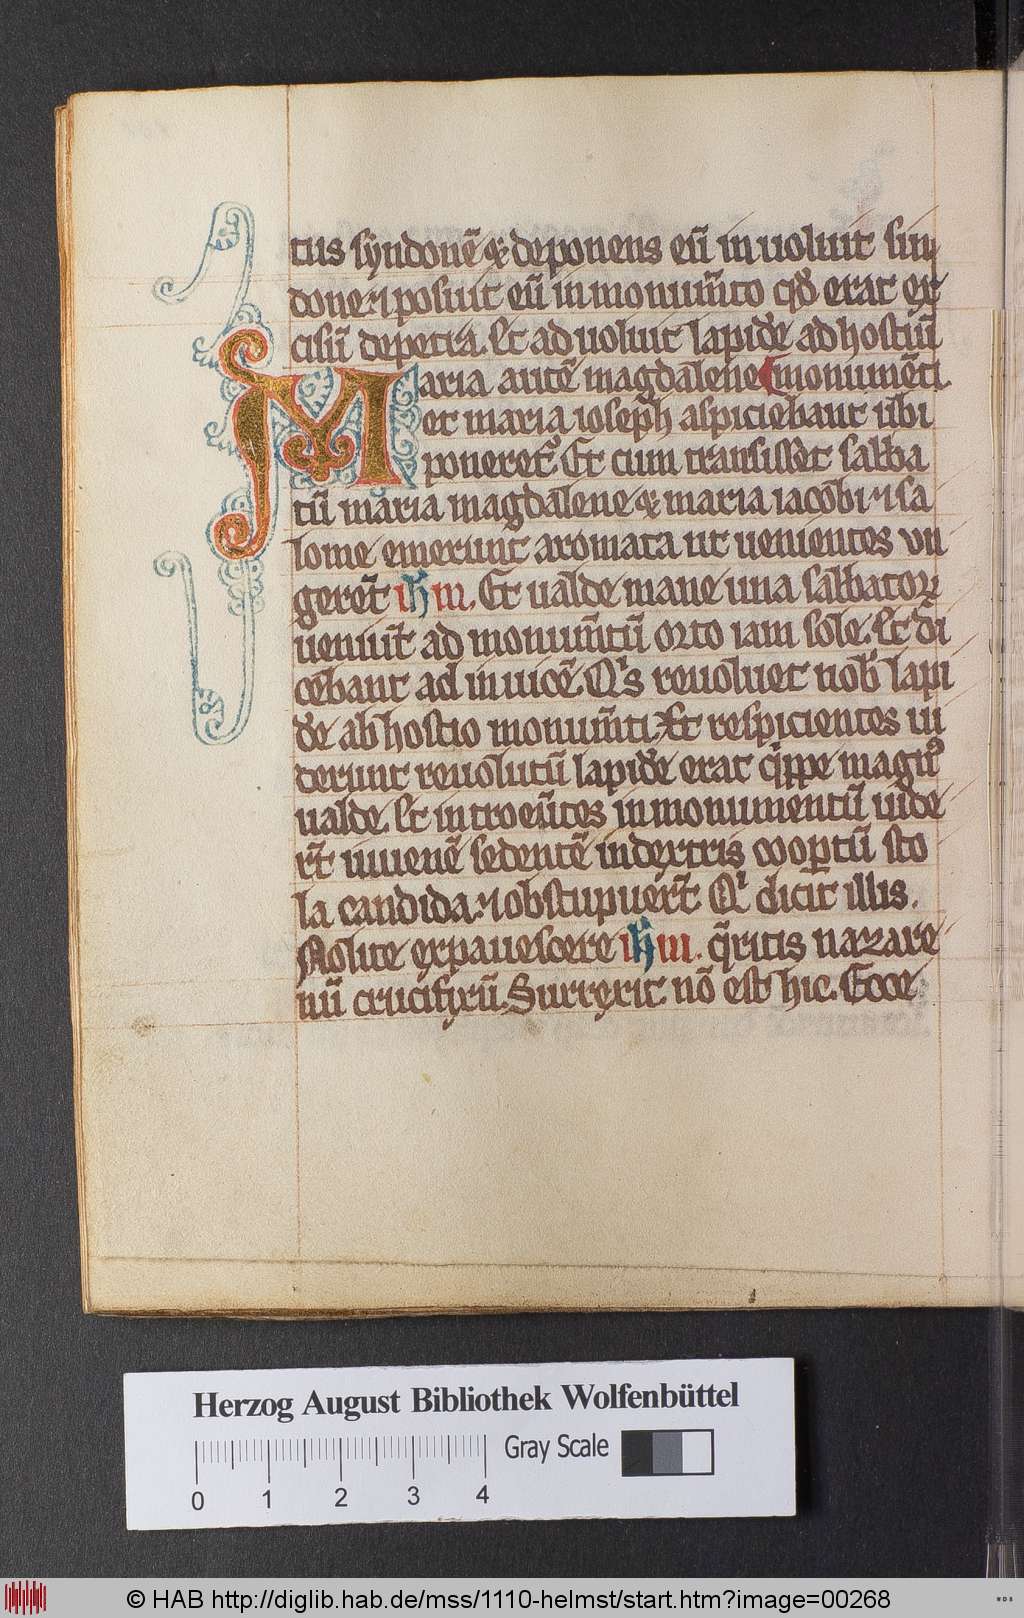 tus syndonē & deponens eū in uoluit sin
done ⁊ posuit eū in monum̄to qd̄ erat ex
cisū de petra. Et ad uoluit lapidē ad hostiū
Maria autē magdalene monumēti.
et maria ioseph aspiciebant ubi
poneret᷑ Et cum transiss̄et sabba
tū maria magdalene & maria iacobi ⁊ sa
lome emerunt aromata ut uenientes un
gerēt ihm. Et ualde mane una sabbatoꝝ
ueniūt ad monum̄tū orto iam sole. Et di
cebant ad inuicē Qⁱs reuoluet nob̄ lapi
dē ab hostio monum̄ti. Et respicientes ui
derunt reuolutū lapidē erat q̄ppe magnꝰ
ualde. Et introeūtes in monumentū uide
rt̄ iuuenē sedentē in dextris coopertū sto
la candida ⁊ obstupuer̄t Qⁱ dicit illis.
Nolite expauescere ihm. q̄ritis nazare
nū crucifixū. Surrexit nō est hic. Ecce
Herzog August Bibliothek Wolfenbüttel
Gray Scale
0 1 2 3 4
© HAB http://diglib.hab.de/mss/1110-helmst/start.htm?image=00268